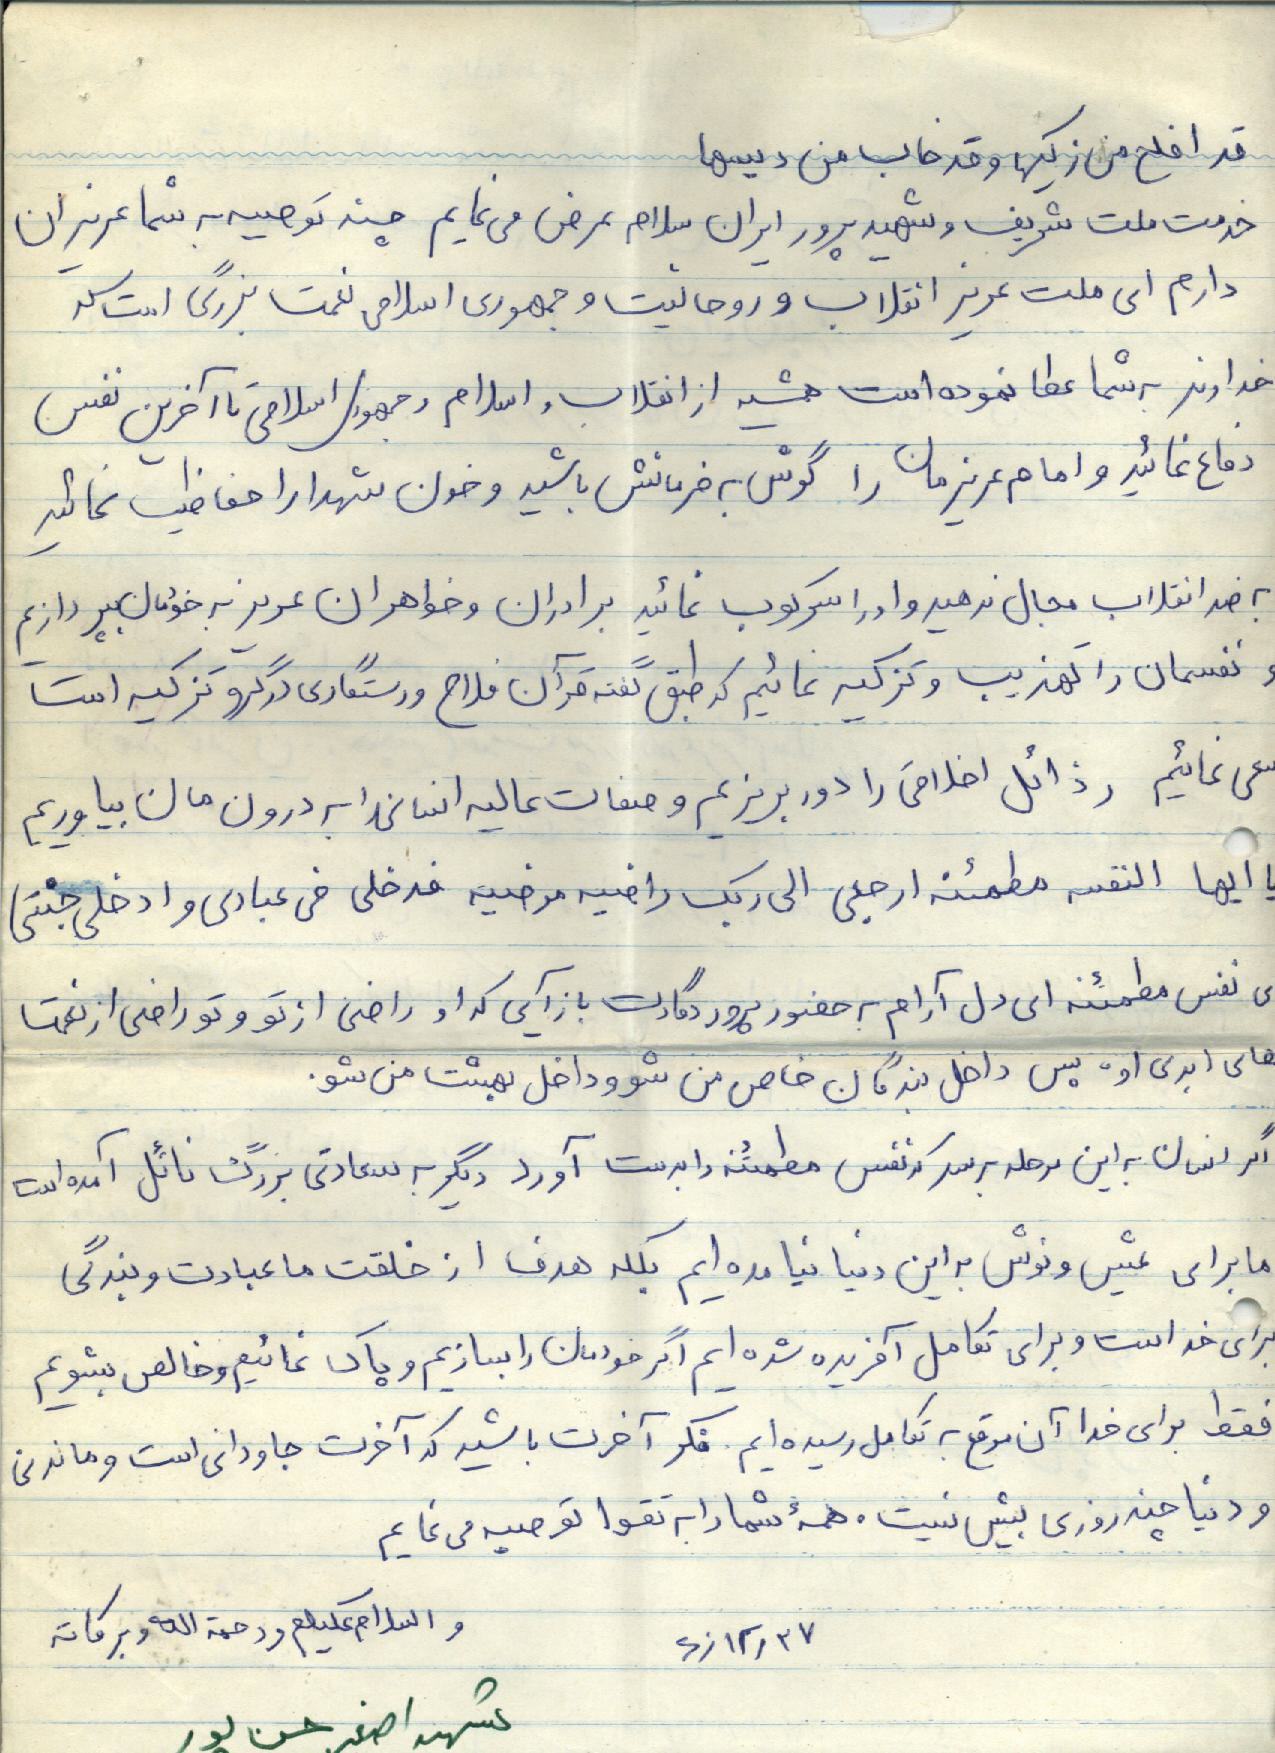 قد افلح من زکیها و قد خاب من دسیها
خدمت ملت شریف و شهید پرور ایران سلام عرض می نمایم چند توصیه به شما عزیزان
دارم ای ملت عزیز انقلاب و روحانیت و جمهوری اسلامی نعمت بزرگی است که
خداوند به شما عطا نموده است همیشه از انقلاب و اسلام و جمهوری اسلامی تا آخرین نفس
دفاع نمائید و امام عزیزمان را گوش به فرمانش باشید و خون شهدا را حفاظت نمائید
به ضد انقلاب مجال ندهید و او را سرکوب نمائید برادران و خواهران عزیز به خودمان بپردازیم
و نفسمان را تهذیب و تزکیه نمائیم که طبق گفته قرآن فلاح و رستگاری در گرو تزکیه است
سعی نمائیم رذائل اخلاقی را دور بریزیم و صفات عالیه انسانی را به درون مان بیاوریم
یا ایها النفسه مطمئنه ارجعی الی ربک راضیه مرضیه فدخلی فی عبادی و ادخلی جنتی
ی نفس مطمئنه ای دل آرام به حضور پروردگارت بازآیی که او راضی از تو و تو راضی از نعمت
های ابدی او، پس داخل بندگان خاص من شو و داخل بهشت من شو.
اگر انسان به این مرحله برسد که نفس مطمئنه را بدست آورد دیگر به سعادتی بزرگ نائل آمده است
ما برای عیش و نوش به این دنیا نیامده ایم بلکه هدف از خلقت ما عبادت و بندگی
برای خدا است و برای تکامل آفریده شده ایم اگر خودمان را بسازیم و پاک نمائیم و خالص بشویم
فقط برای خدا آن موقع به تکامل رسیده ایم. فکر آخرت باشید که آخرت جاودانی است و ماندنی
و دنیا چند روزی بیش نیست. همهٔ شما را به تقوا توصیه می نمایم
و السلام علیکم و رحمة الله و برکاته
شهید اصغر حسن پور